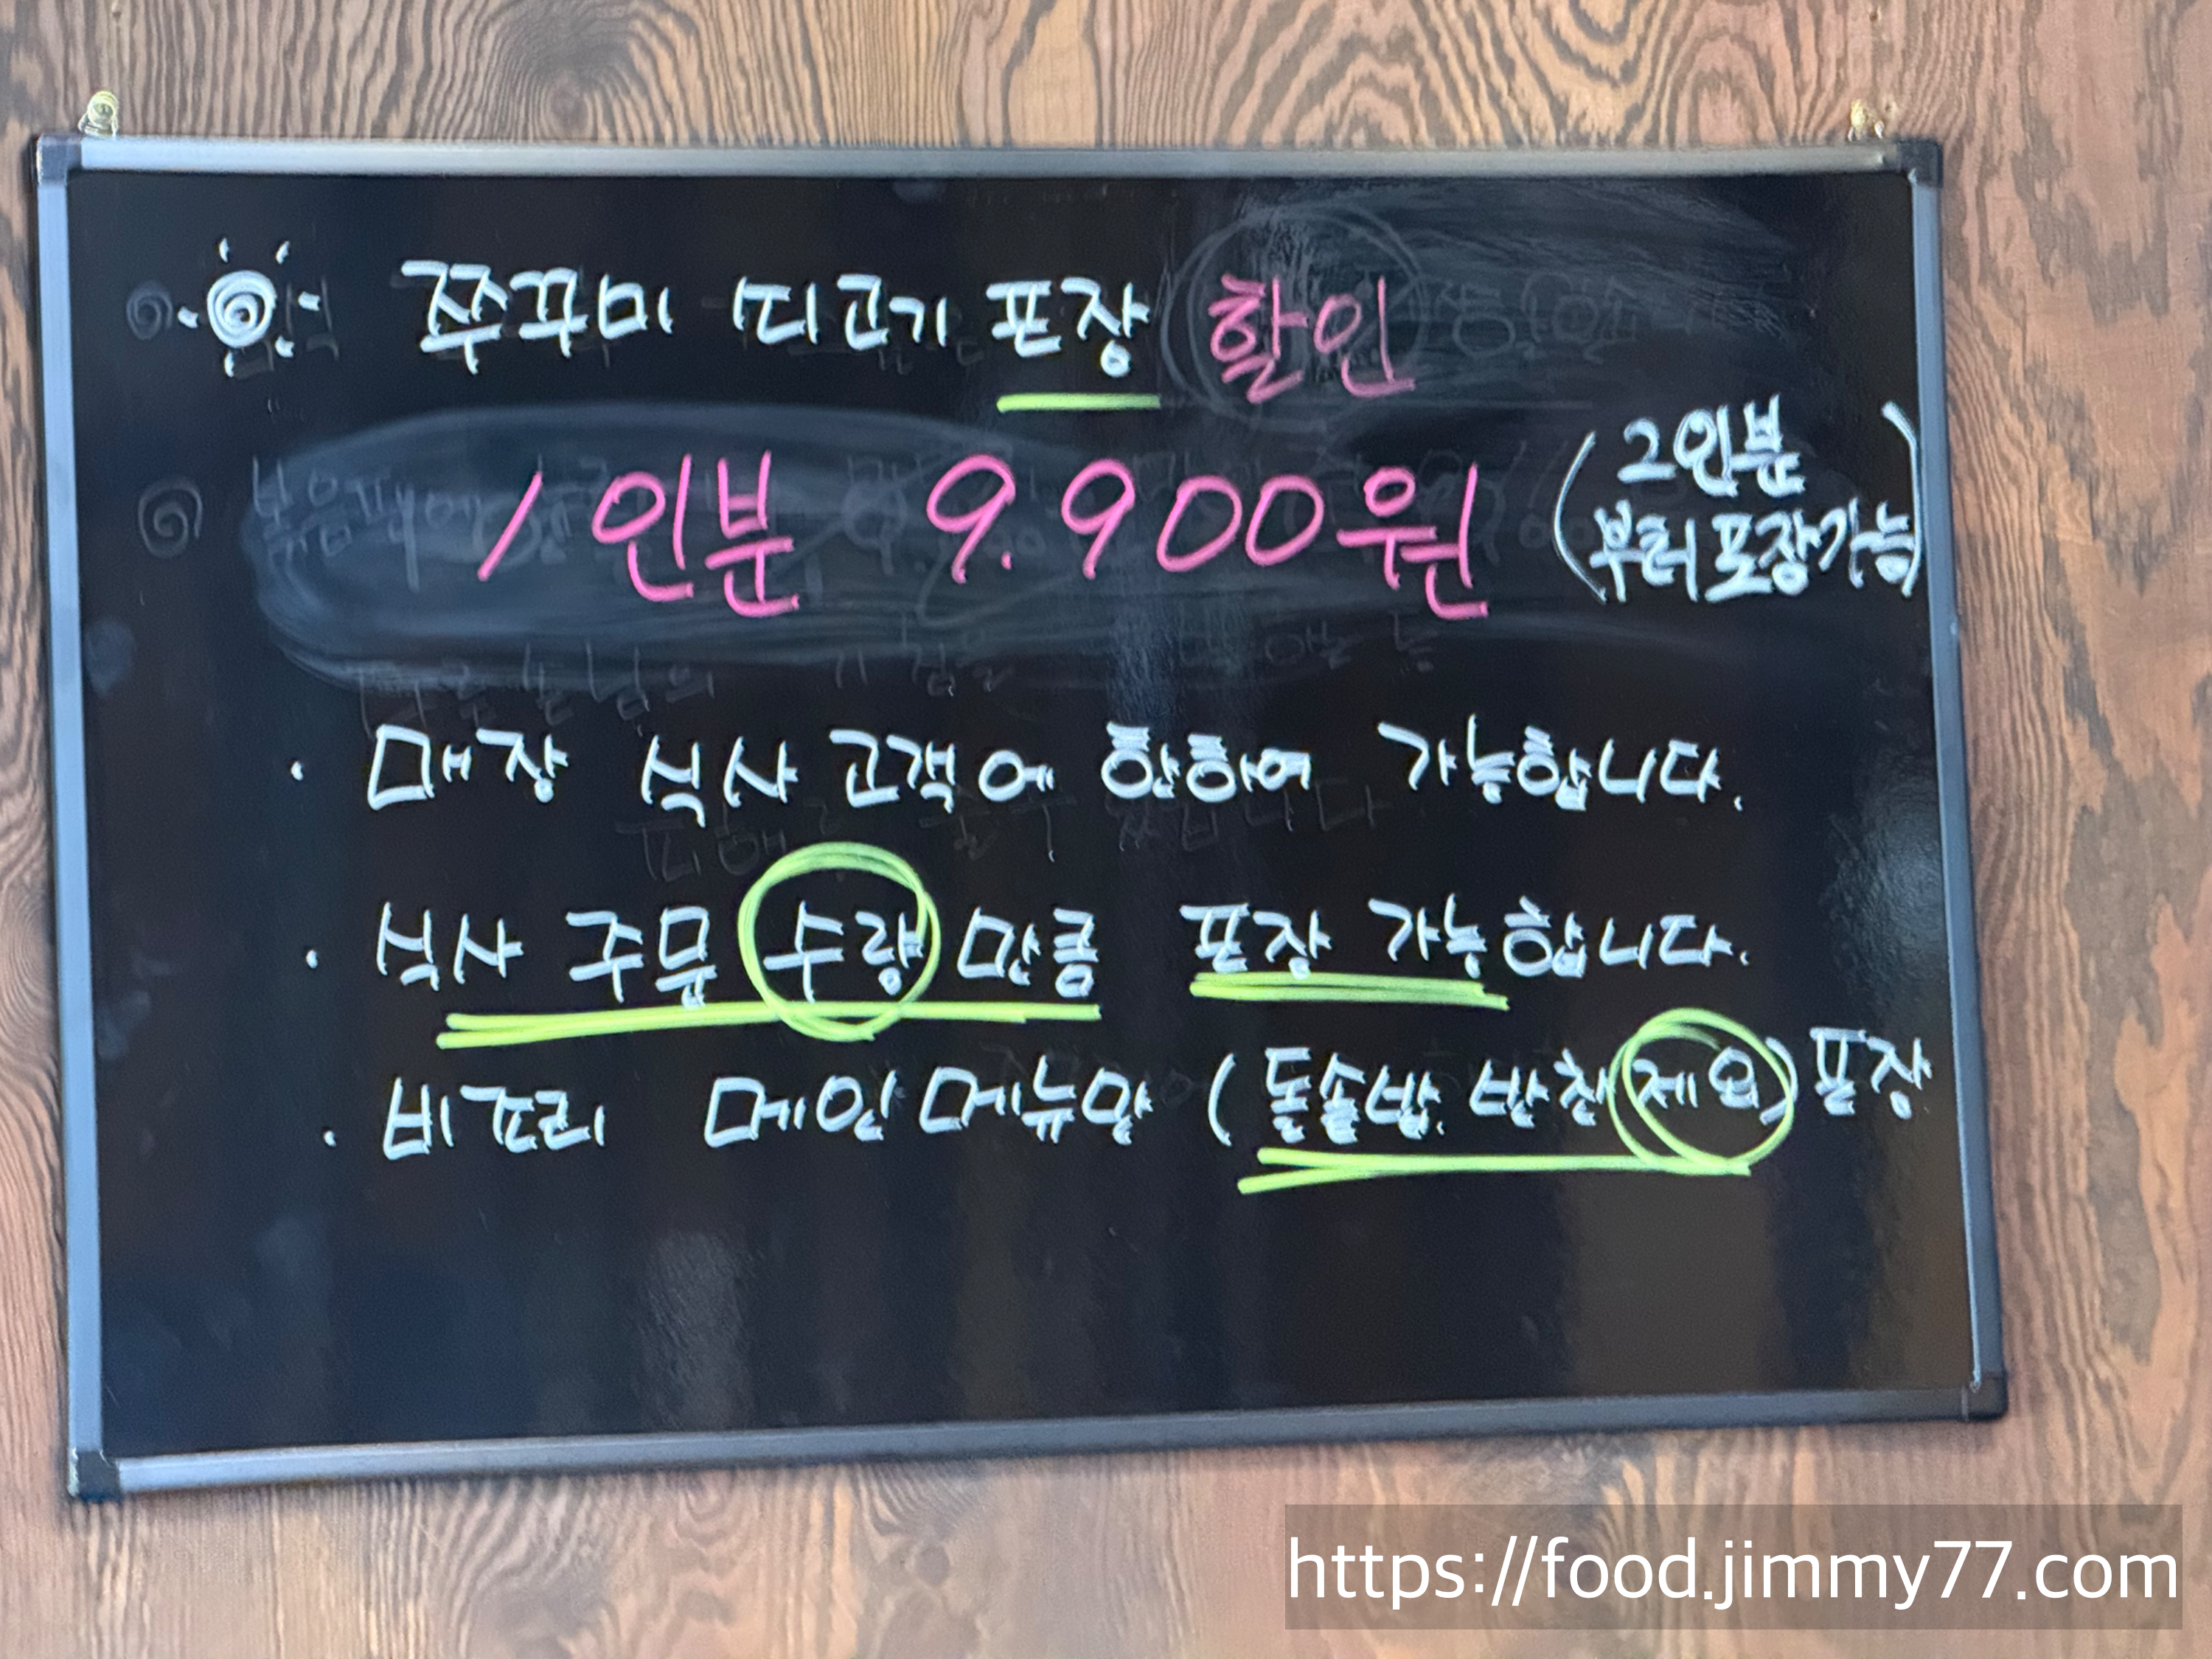 쭈꾸미 띠고기 포장 할인
1인분 9.900원 (2인분
부터 포장가능)
· 매장 식사 고객에 한하여 가능합니다.
· 식사 주문 수량 만큼 포장 가능합니다.
· 비조리 메인메뉴만 (돌솥밥. 반찬 제외) 포장
https://food.jimmy77.com